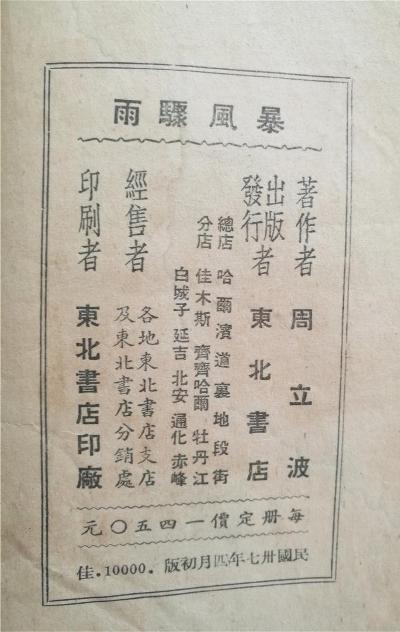 暴風驟雨
著作者 周立波
出版
發行者 東北書店
總店 哈爾濱道裏地段街
分店 佳木斯 齊齊哈爾 牡丹江
白城子 延吉 北安 通化 赤峰
經售者 各地東北書店支店
及東北書店分銷處
印刷者 東北書店印廠
每册定價一四五〇元
民國卅七年四月初版.10000.佳